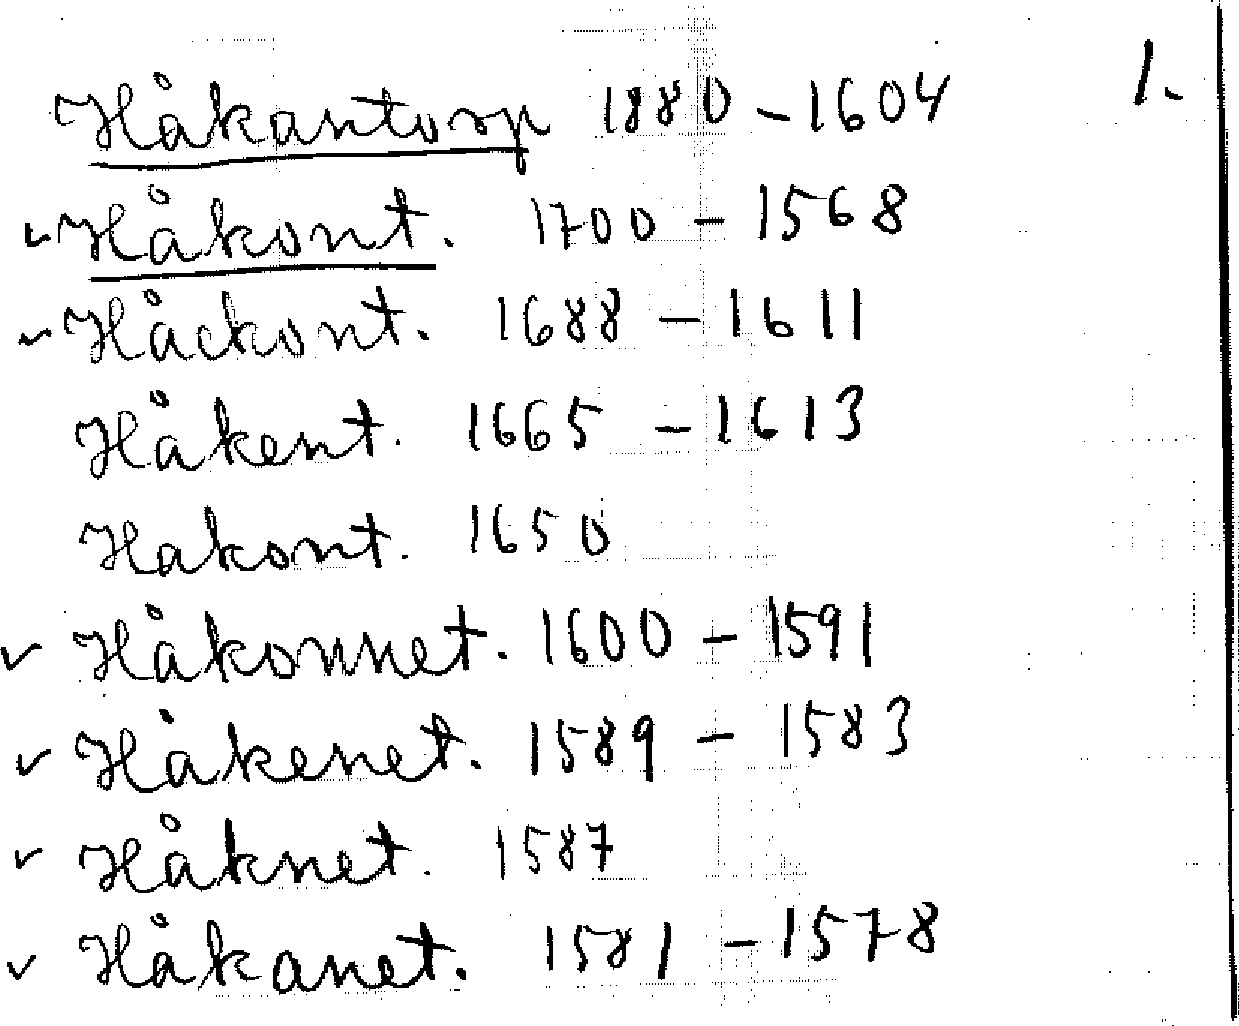 Håkantorp 1880 - 1604 1.
Håkont. 1700 - 1568
Håckont. 1688 - 1611
Håkent. 1665 - 1613
Hakont. 1650
Håkonnet. 1600 - 1591
Håkenet. 1589 - 1583
Håknet. 1587
Håkanet. 1581 - 1578